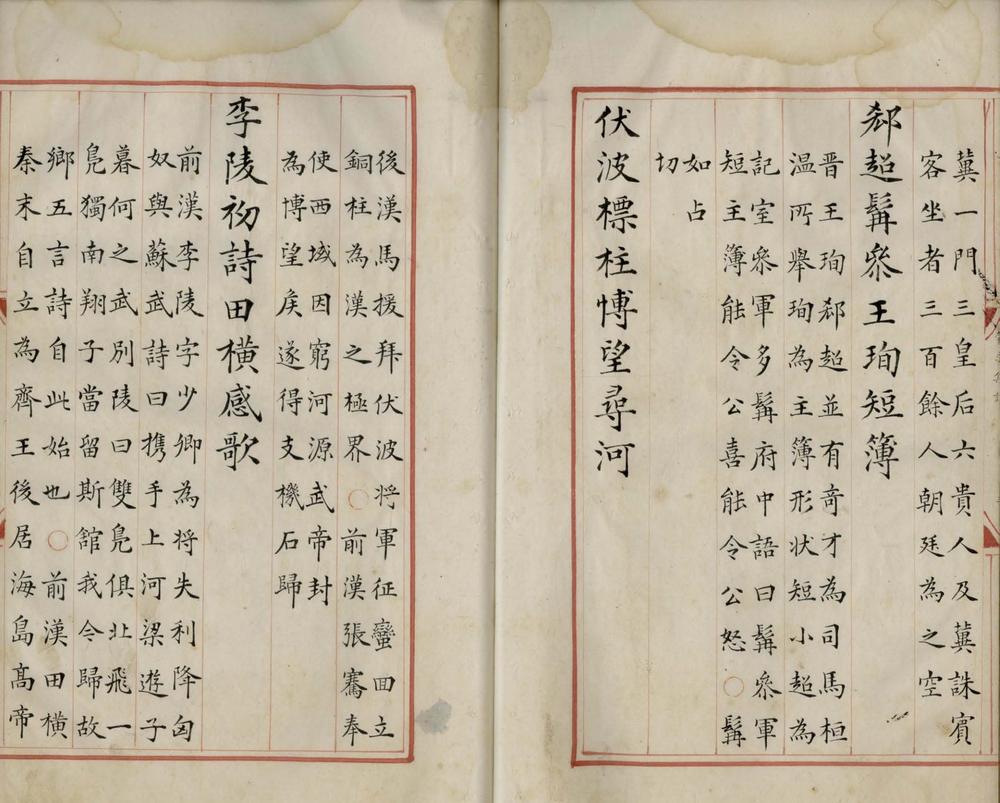 冀一門三皇后六貴人及冀誅賓
客坐者三百餘人朝廷為之空
郄超髯叅王珣短簿
晋王珣郄超並有奇才為司馬桓
温所舉珣為主簿形状短小超為
記室叅軍多髯府中語曰髯叅軍
短主簿能令公喜能令公怒○髯
如占
切
伏波標柱博望尋河
後漢馬援拜伏波将軍征蠻回立
銅柱為漢之極界○前漢張騫奉
使西域因窮河源武帝封
為博望矦遂得支機石歸
李陵初詩田横感歌
前漢李陵字少卿為将失利降匈
奴與蘇武詩曰携手上河梁遊子
暮何之武别陵曰雙鳬俱北飛一
鳬獨南翔子當留斯館我今歸故
鄉五言詩自此始也○前漢田横
秦末自立為齊王後居海島髙帝